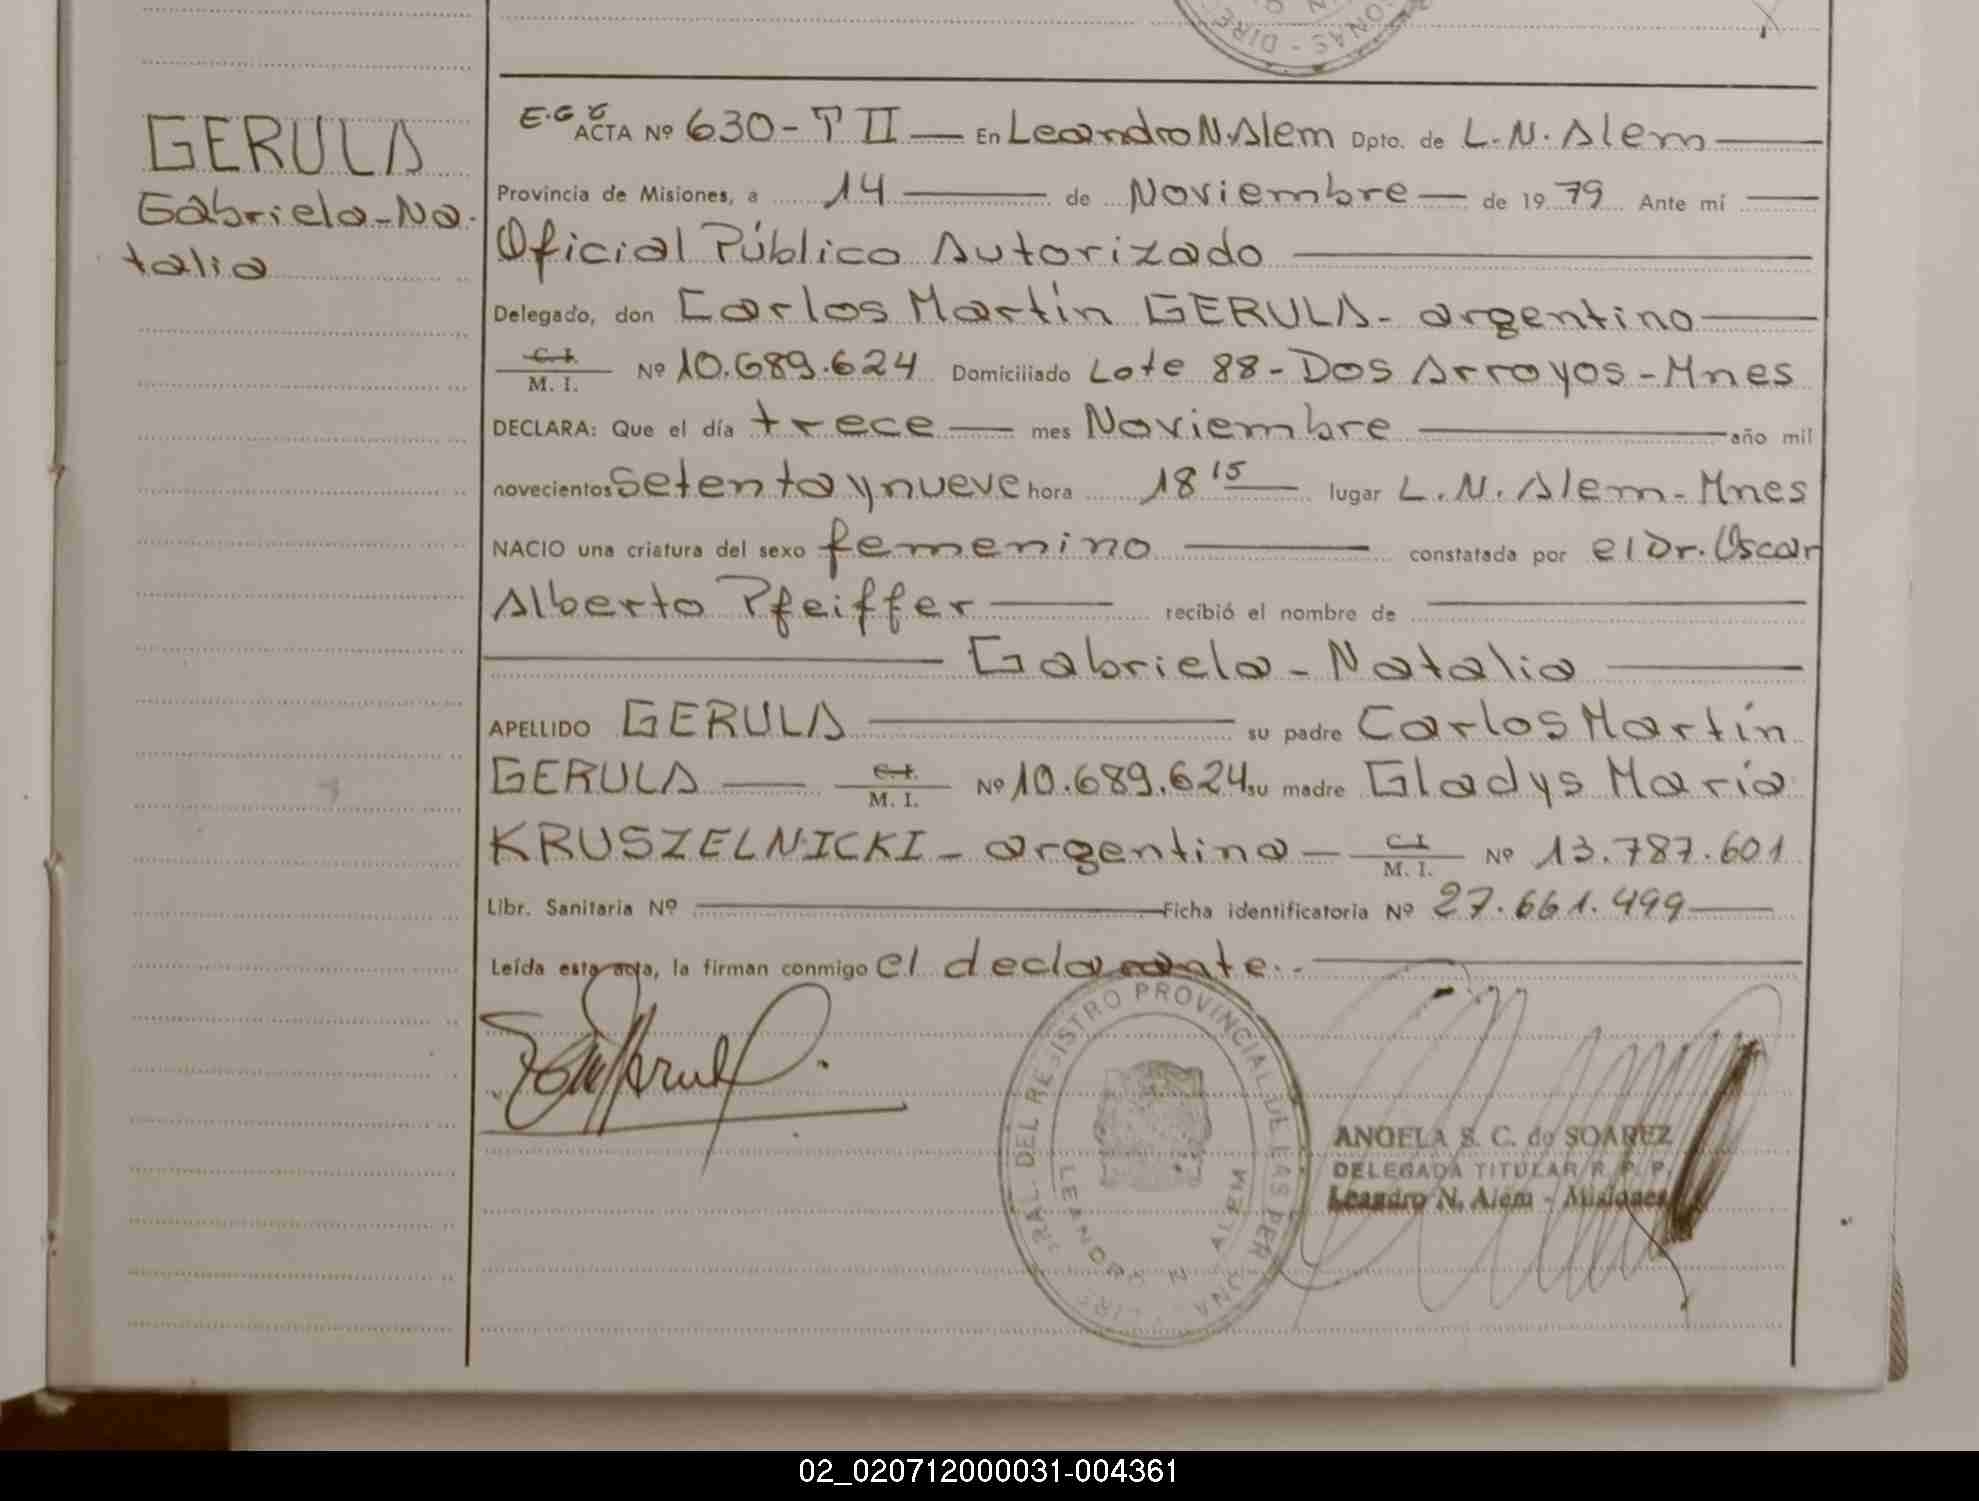 GERULA
Gabriela-Na-
talia
E.G.G ACTA Nº 630-T II — En Leandro N. Alem Dpto. de L.N. Alem —
Provincia de Misiones, a 14 — de Noviembre — de 1979 Ante mí —
Oficial Público Autorizado —
Delegado, don Carlos Martín GERULA - argentino —
C. I. / M. I. Nº 10.689.624 Domiciliado Lote 88 - Dos Arroyos - Mnes
DECLARA: Que el día trece — mes Noviembre — año mil
novecientos setenta y nueve hora 18 15 — lugar L. N. Alem - Mnes
NACIO una criatura del sexo femenino — constatada por el Dr. Oscar
Alberto Pfeiffer — recibió el nombre de —
— Gabriela - Natalia —
APELLIDO GERULA — su padre Carlos Martín
GERULA — C. I. / M. I. Nº 10.689.624 su madre Gladys María
KRUSZELNICKI - argentina — C. I. / M. I. Nº 13.787.601
Libr. Sanitaria Nº — Ficha identificatoria Nº 27.661.499 —
Leída esta acta, la firman conmigo el declarante. —
REGISTRO PROVINCIAL DE LAS PERSONAS
LEANDRO N ALEM
ANGELA S. C. de SOAREZ
DELEGADA TITULAR R. P. P.
Leandro N. Alem - Misiones
02_020712000031-004361